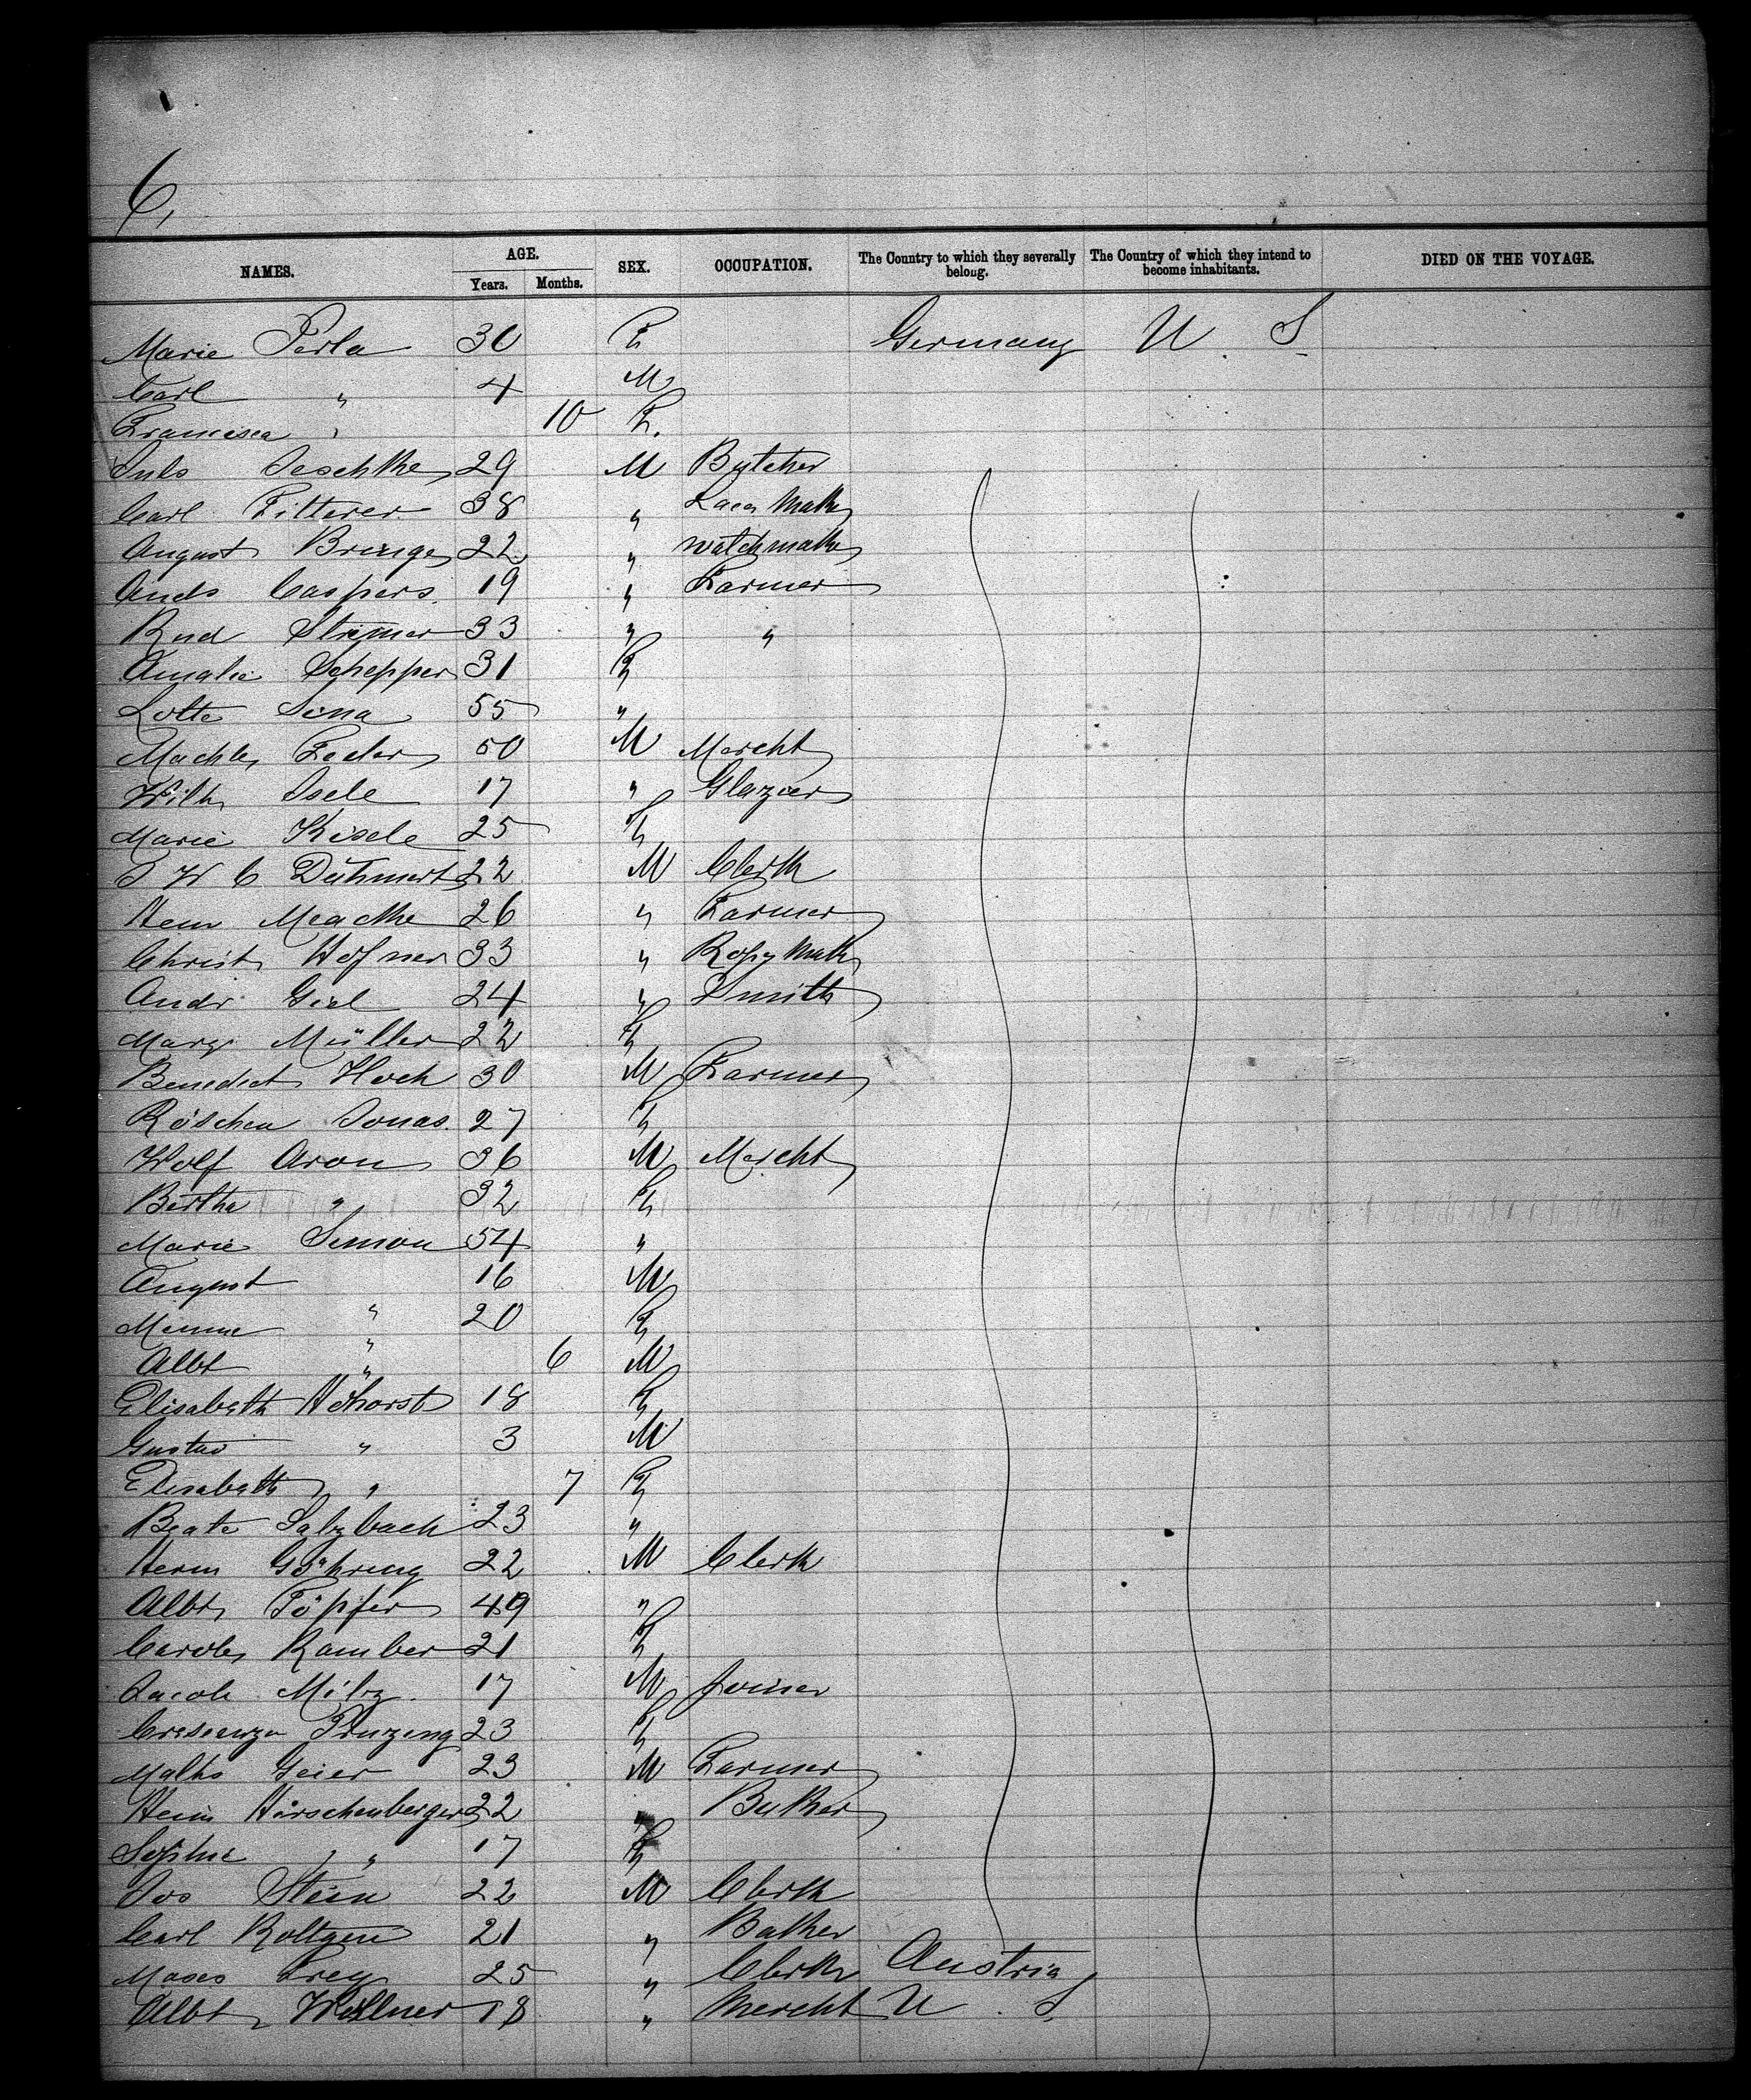 6,
NAMES. AGE. SEX. OCCUPATION. The Country to which they severally belong. The Country of which they intend to become inhabitants. DIED ON THE VOYAGE.
Years. Months.
Marie Perla 30 F Germany U. S
Carl " 4 M
Francisca " 10 F.
Juls Jeschke 29 M Butcher
Carl Fitterer 38 " Lace Make
August Bringe 22 " watchmake
Ands Caspers 19 " Farmer
Rud Stremer 33 " "
Amalie Schepper 31 F
Lotte Sena 55 "
Machle Feder 50 M Mercht
Wilh Isele 17 " Glazier
Marie Kisele 25 F
J W C Dühmert 22 M Clerk
Henr Meadke 26 " Farmer
Christ Hofner 33 " Rope Make
Andr Girl 24 " Smith
Marg Müller 22 F
Benedict Hoch 30 M Farmer
Röschen Jonas. 27 F
Wolf Aron 36 M Mercht
Bertha " 32 F
Marie Simon 54 "
August " 16 M
Minna " 20 F
Albt " 6 M
Elisabeth Höhorst 18 F
Gustav " 3 M
Elisabeth " 7 F
Beate Salzbach 23 "
Herm Göhring 22 M Clerk
Albt Töpfer 49 "
Carole Ramber 21 F
Jacob Milz. 17 M Joiner
Crescenza 23 F
Maths Geier 23 M Farmer
Hein Hörschenberger 22 " Butker
Sophie " 17 F
Jos Stein 22 M Clerk
Carl Roltgen 21 " Baker
Moses Frey 25 " Clerk Austria
Albt Wellner 18 " Mercht U. S.